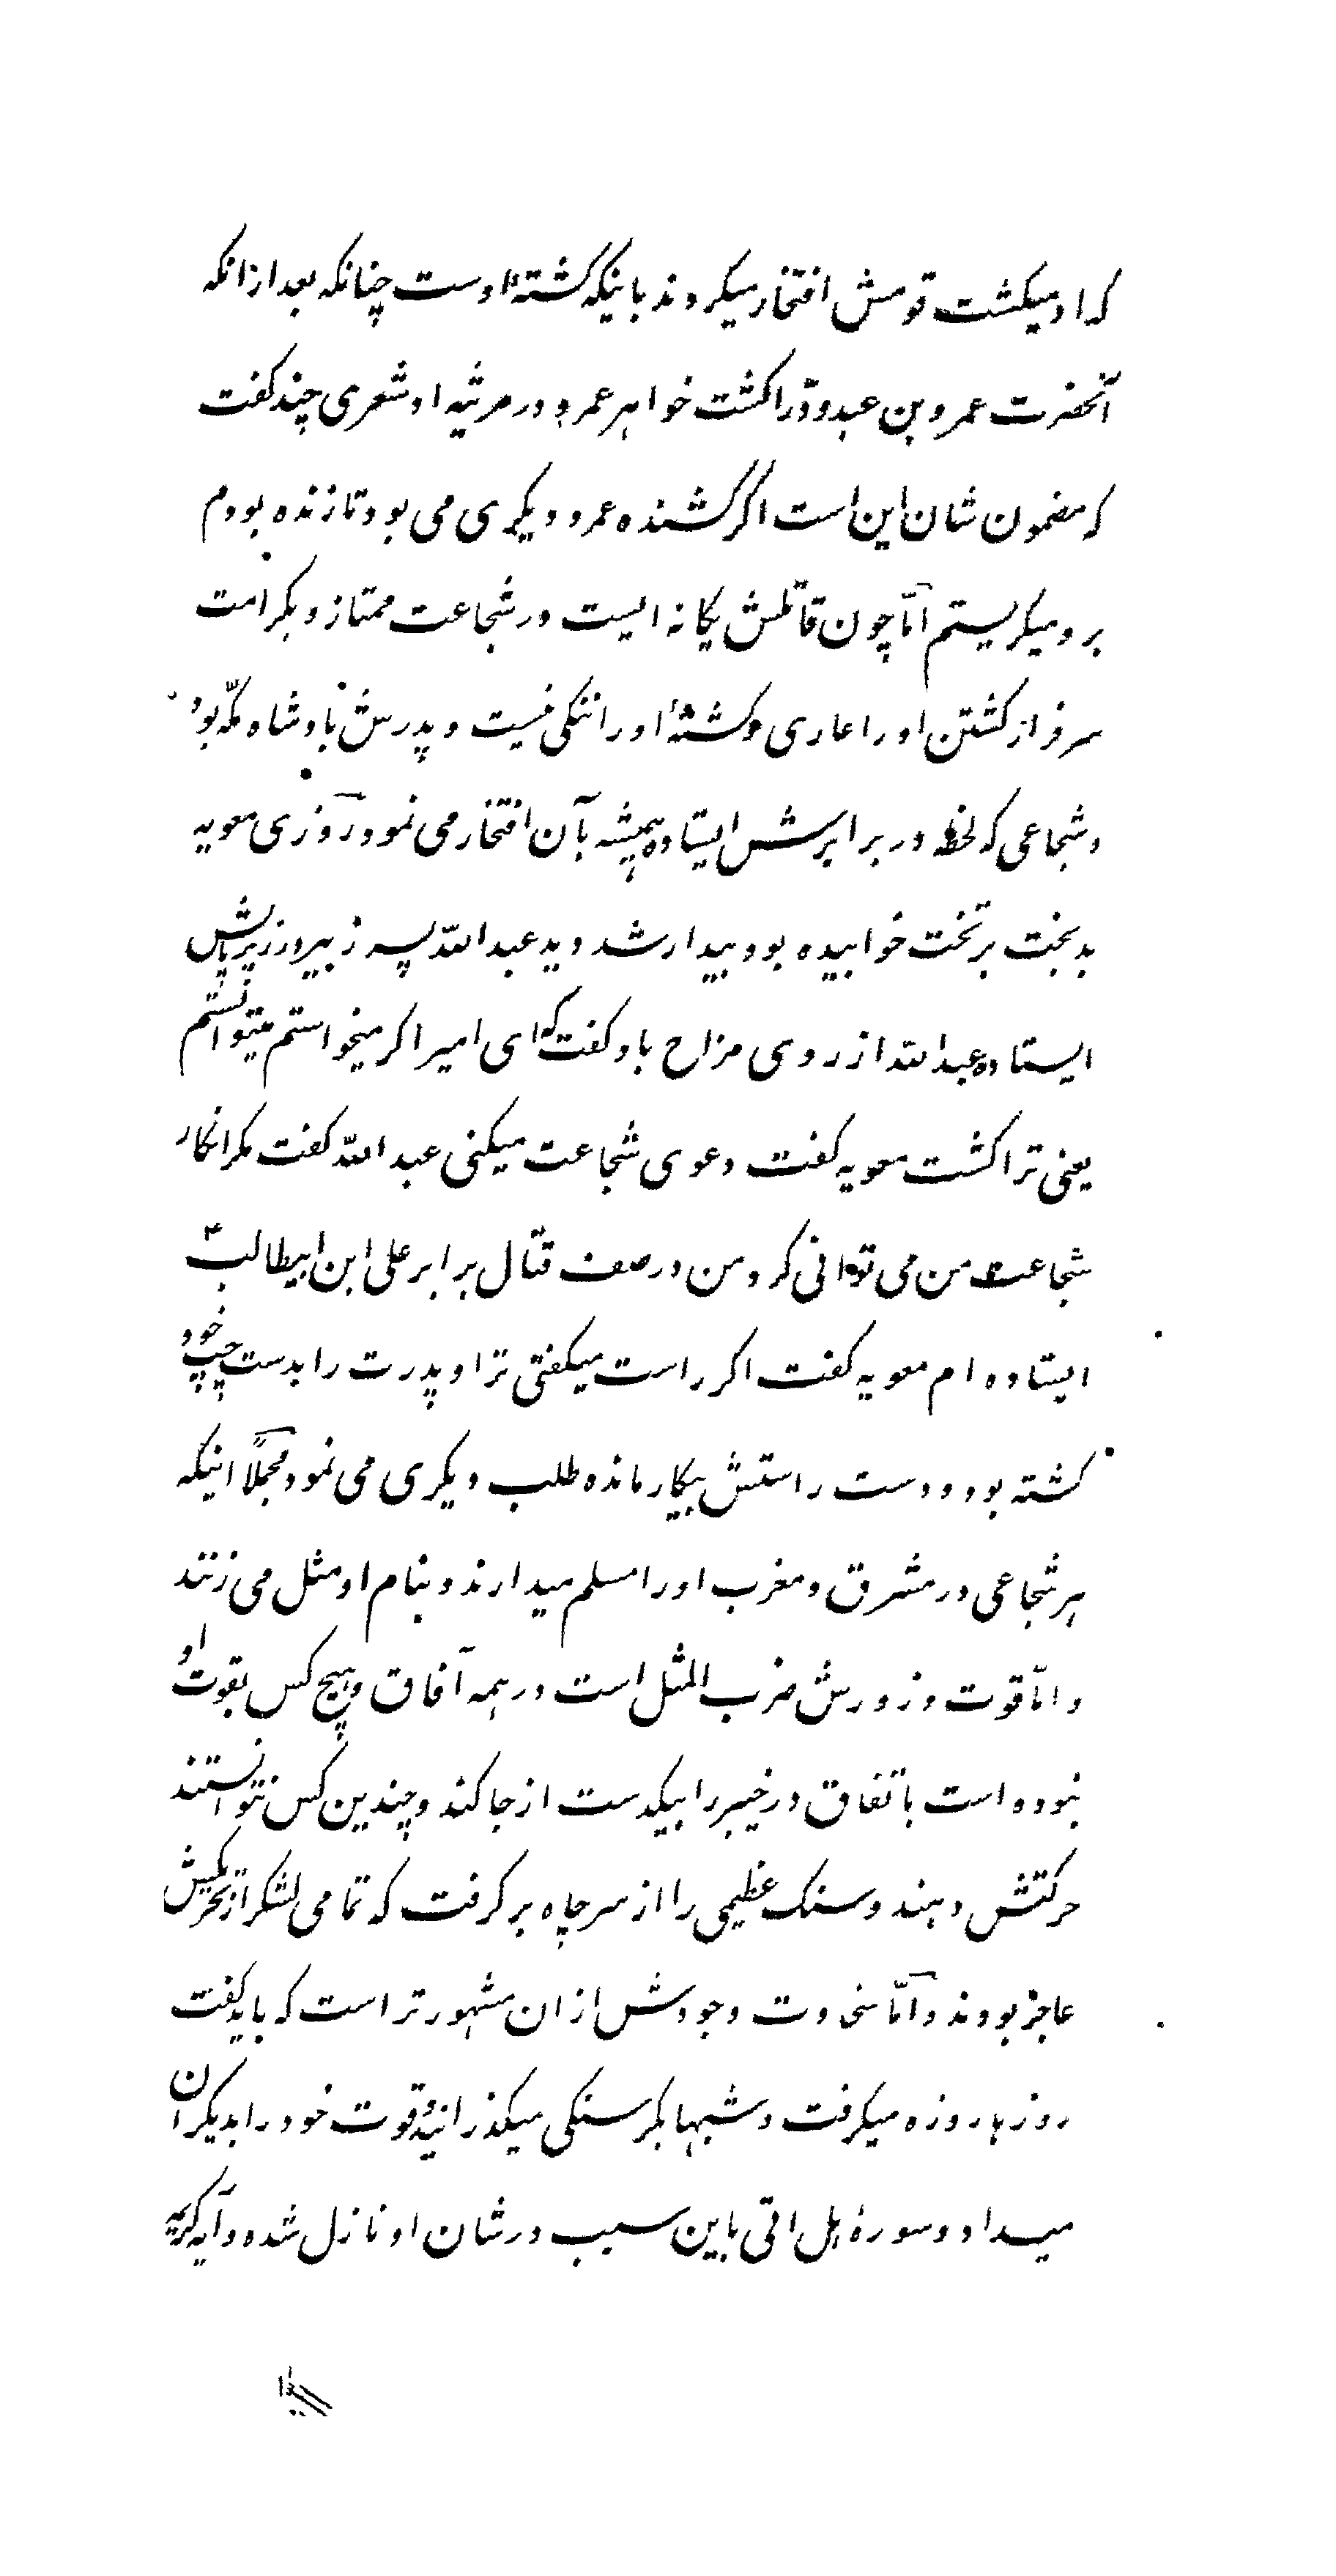 که او میکشت قومش افتخار میکردند باینکه کشتهٔ اوست چنانکه بعد ازانکه
آنحضرت عمرو بن عبدودّ را کشت خواهر عمرو در مرثیه او شعری چند کفت
که مضمون شان این است اکر کشنده عمرو دیکری می بود تا زنده بودم
برو میکریستم امّا چون قاتلش یکانه ایست در شجاعت ممتاز و بکرامت
سرفراز کشتن او را عاری و کشتهٔ او را ننکی نیست و پدرش پادشاه مکّه بود
و شجاعی که لحظه در برابرش ایستاده همیشه بآن افتخار می نمود روزی معویه
بدبخت بر تخت خوابیده بود بیدار شد دید عبد اللّه پسر زبیر در زیر پایش
ایستاده عبد اللّه از روی مزاح باو کفت که ای امیر اکر میخواستم میتوانستم
یعنی ترا کشت معویه کفت دعوی شجاعت میکنی عبد اللّه کفت مکر انکار
شجاعت من می توانی کرد من در صف قتال برابر علی ابن ابیطالب ع
ایستاده ام معویه کفت اکر راست میکفتی ترا و پدرت را بدست چپ خود
کشته بود و دست راستش بیکار مانده طلب دیکری می نمود مجملاً اینکه
هر شجاعی در مشرق و مغرب او را مسلم میدارند و بنام او مثل می زنند
و امّا قوت و زورش ضرب المثل است در همه آفاق و هیچ کس بقوت او
نبوده است باتفاق در خیبر را بیکدست از جا کند و چندین کس نتوانستند
حرکتش دهند و سنک عظیمی را از سر چاه بر کرفت که تمامی لشکر از تحریکش
عاجز بودند و امّا سخاوت وجودش ازان مشهورتر است که باید کفت
روزها روزه میکرفت و شبها بکرسنکی میکذرانید و قوت خود را بدیکران
میداد و سورهٔ هل اتی باین سبب در شان او نازل شده و آیه کریمه